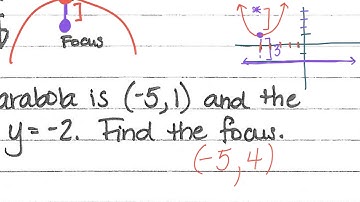 Focus
3
arabola is (-5,1) and the
y=-2. Find the focus.
(-5,4)